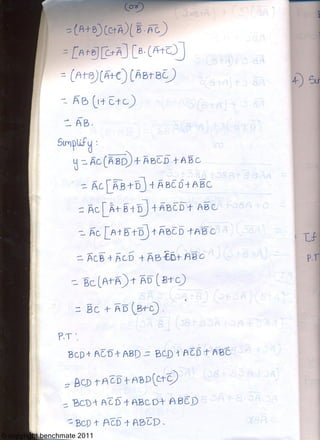 (OR)
= (A+B)(C+A)(B̅·A̅C̅)
= [A+B][C+A̅][B·(A+C̅)]
= (A+B)(A+C)[AB+BC]
= AB(1+C+C)
= AB.
Simplify:
y = A̅C(A̅B̅D̅) + A̅BC̅D̅ + AB̅C
= A̅C[A̅B̅+D̅] + A̅BC̅D̅ + AB̅C
= A̅C[A+B̅+D̅] + A̅BC̅D̅ + AB̅C
= A̅C[A+B̅+D̅] + A̅BC̅D̅ + AB̅C
= A̅CB̅ + A̅CD̅ + A̅BC̅D̅ + AB̅C
= B̅C(A+A̅) + A̅D̅(B+C)
= B̅C + A̅D̅(B+C).
P.T:
BCD + AC̅D̅ + ABD = BCD + AC̅D̅ + ABC̅
= BCD + AC̅D̅ + ABD(C+C̅)
= BCD + AC̅D̅ + ABCD + ABC̅D
= BCD + AC̅D̅ + ABC̅D.
4) Su
If
P.T
benchmate 2011